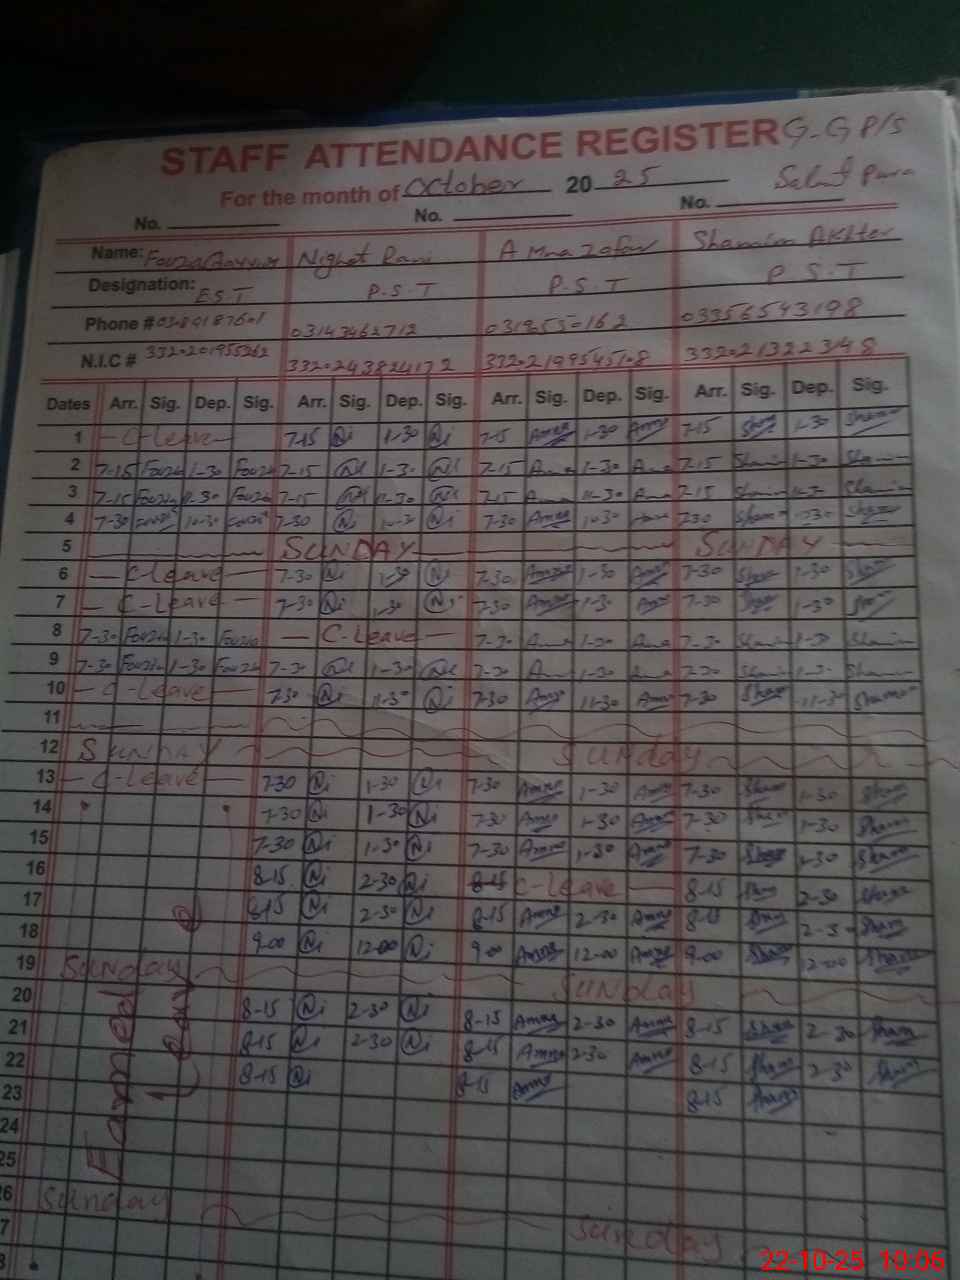 STAFF ATTENDANCE REGISTER G-GP/S
For the month of October 20 25
No. No. No.
Name: Nighat Rani Amna Zafar Shamim Akhter
Designation: E.S.T P.S.T P.S.T P.S.T
Phone # 03143462712 03356543198
N.I.C #
Dates Arr. Sig. Dep. Sig. Arr. Sig. Dep. Sig. Arr. Sig. Dep. Sig. Arr. Sig. Dep. Sig.
1 C-Leave 7-15 Ni 1-30 Ni 7-15 Amna 1-30 Amna 7-15 Sham 1-30 Sham
2 7-15 Fouzia 1-30 Fouzia 7-15 1-30 7-15 Amna 1-30 Amna 7-15 Shamim 1-30 Shamim
3 7-15 Fouzia Fouzia 7-15 7-15 Amna 11-30 Amna 7-15 Shamim Shamim
4 7-30 7-30 Ni Ni 7-30 Amna 7-30 Sham Sham
5 SUNDAY SUNDAY
6 C-Leave 7-30 Ni 1-30 Ni 7-30 Amna 1-30 Amna 7-30 Sham 1-30 Sham
7 C-Leave 7-30 Ni 1-30 Ni 7-30 Amna 1-30 Amna 7-30 Sham 1-30 Sham
8 7-30 Fouzia 1-30 Fouzia C-Leave 7-30 Amna 1-30 Amna 7-30 Shamim 1-30 Shamim
9 7-30 Fouzia 1-30 Fouzia 7-30 1-30 7-30 Amna 1-30 Amna 7-30 Shamim 1-30 Shamim
10 C-Leave 7-30 Ni 11-30 Ni 7-30 Amna 11-30 Amna 7-30 Sham 11-30
11
12 SUNDAY Sunday
13 C-Leave 7-30 Ni 1-30 Ni 7-30 Amna 1-30 Amna 7-30 Sham 1-30 Sham
14 7-30 Ni 1-30 Ni 7-30 Amna 1-30 Amna 7-30 Sham 1-30 Sham
15 7-30 Ni 1-30 Ni 7-30 Amna 1-30 Amna 7-30 Sham 1-30 Sham
16 8-15 Ni 2-30 Ni 8-15 C-Leave 8-15 Sham 2-30 Sham
17 8-15 Ni 2-30 Ni 8-15 Amna 2-30 Amna 8-15 Sham 2-30 Sham
18 9-00 Ni 12-00 Ni 9-00 Amna 12-00 Amna 9-00 Sham 12-00 Sham
19 Sunday Sunday
20 8-15 Ni 2-30 Ni 8-15 Amna 2-30 Amna 8-15 Sham 2-30 Sham
21 8-15 Ni 2-30 Ni 8-15 Amna 2-30 Amna 8-15 Sham 2-30 Sham
22 8-15 Ni 8-15 Amna 8-15 Sham
23
24
25
26 Sunday Sunday
Earned Leave
22-10-25 10:06